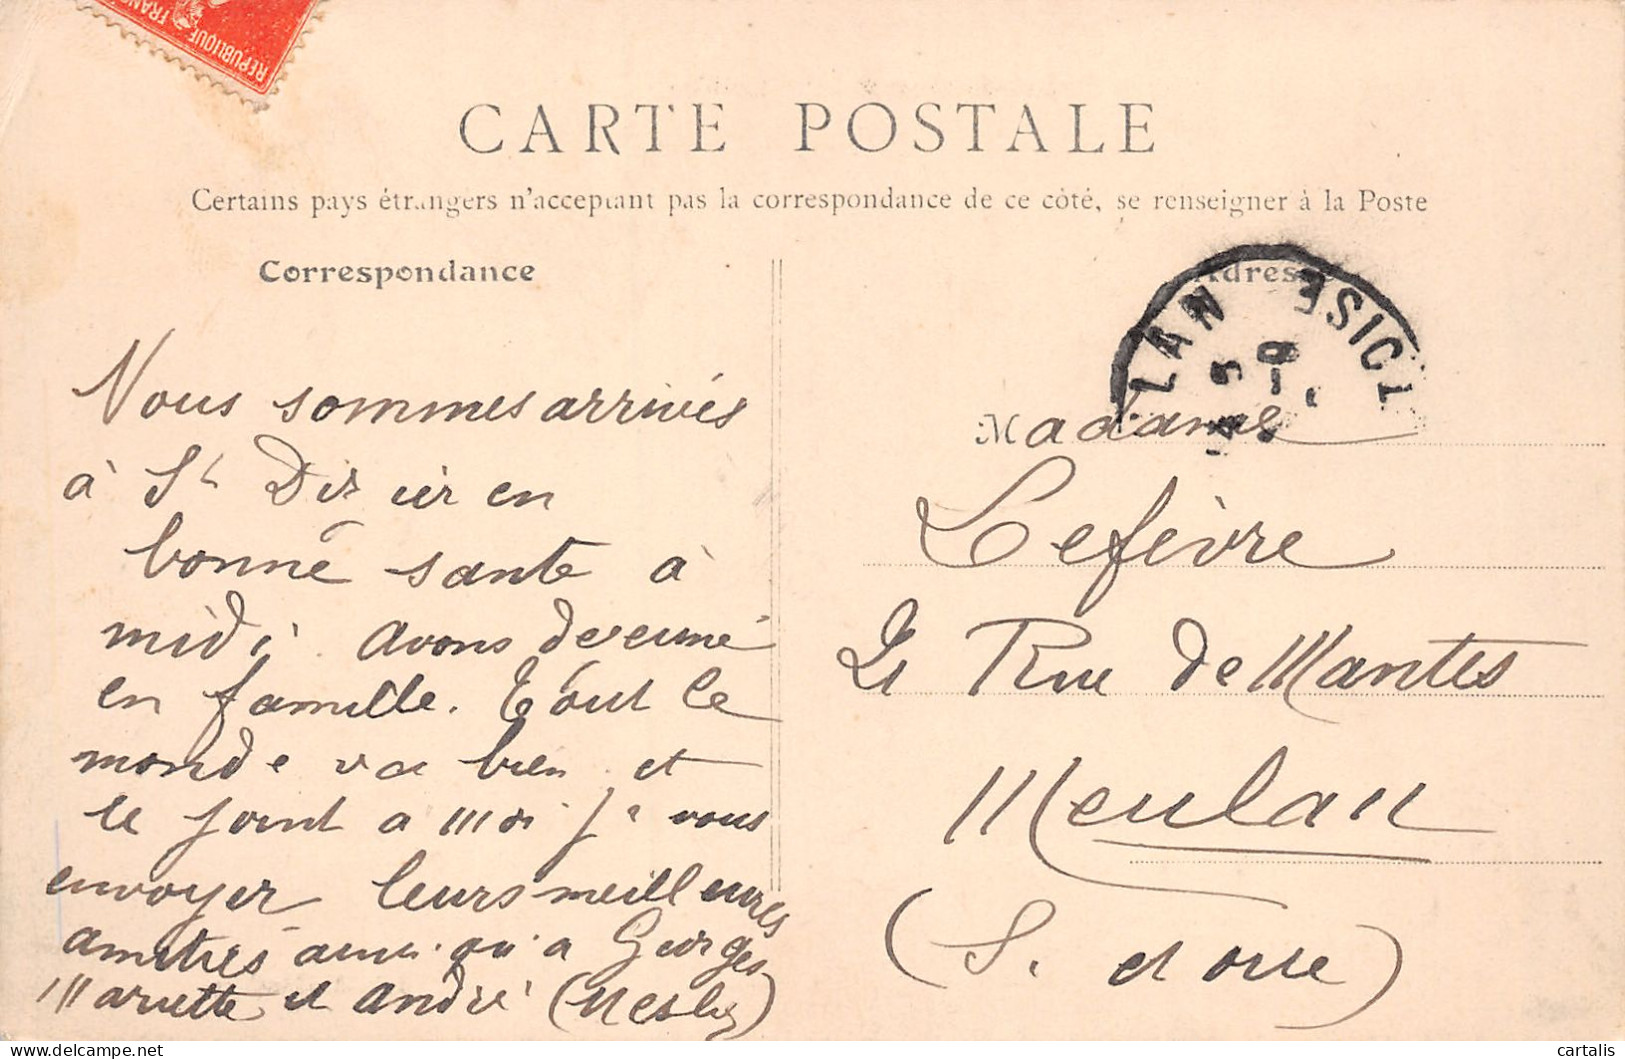 REPUBLIQUE FRANÇ
CARTE POSTALE
Certains pays étrangers n'acceptant pas la correspondance de ce côté, se renseigner à la Poste
Correspondance
Nous sommes arrivés
à St Dizier en
bonné sante à
midi. avons
en famille. Tout le
monde va bien et
se joint a moi pr vous
envoyer leurs meilleures
amitiés ainsi qu'a Georges
Mariette et André (Nesles)
Adresse
LAN ESEIOT
Madame
Lefèvre
21 Rue de Mantes
Meulan
(S. et oise)
cartalis
delcampe.net